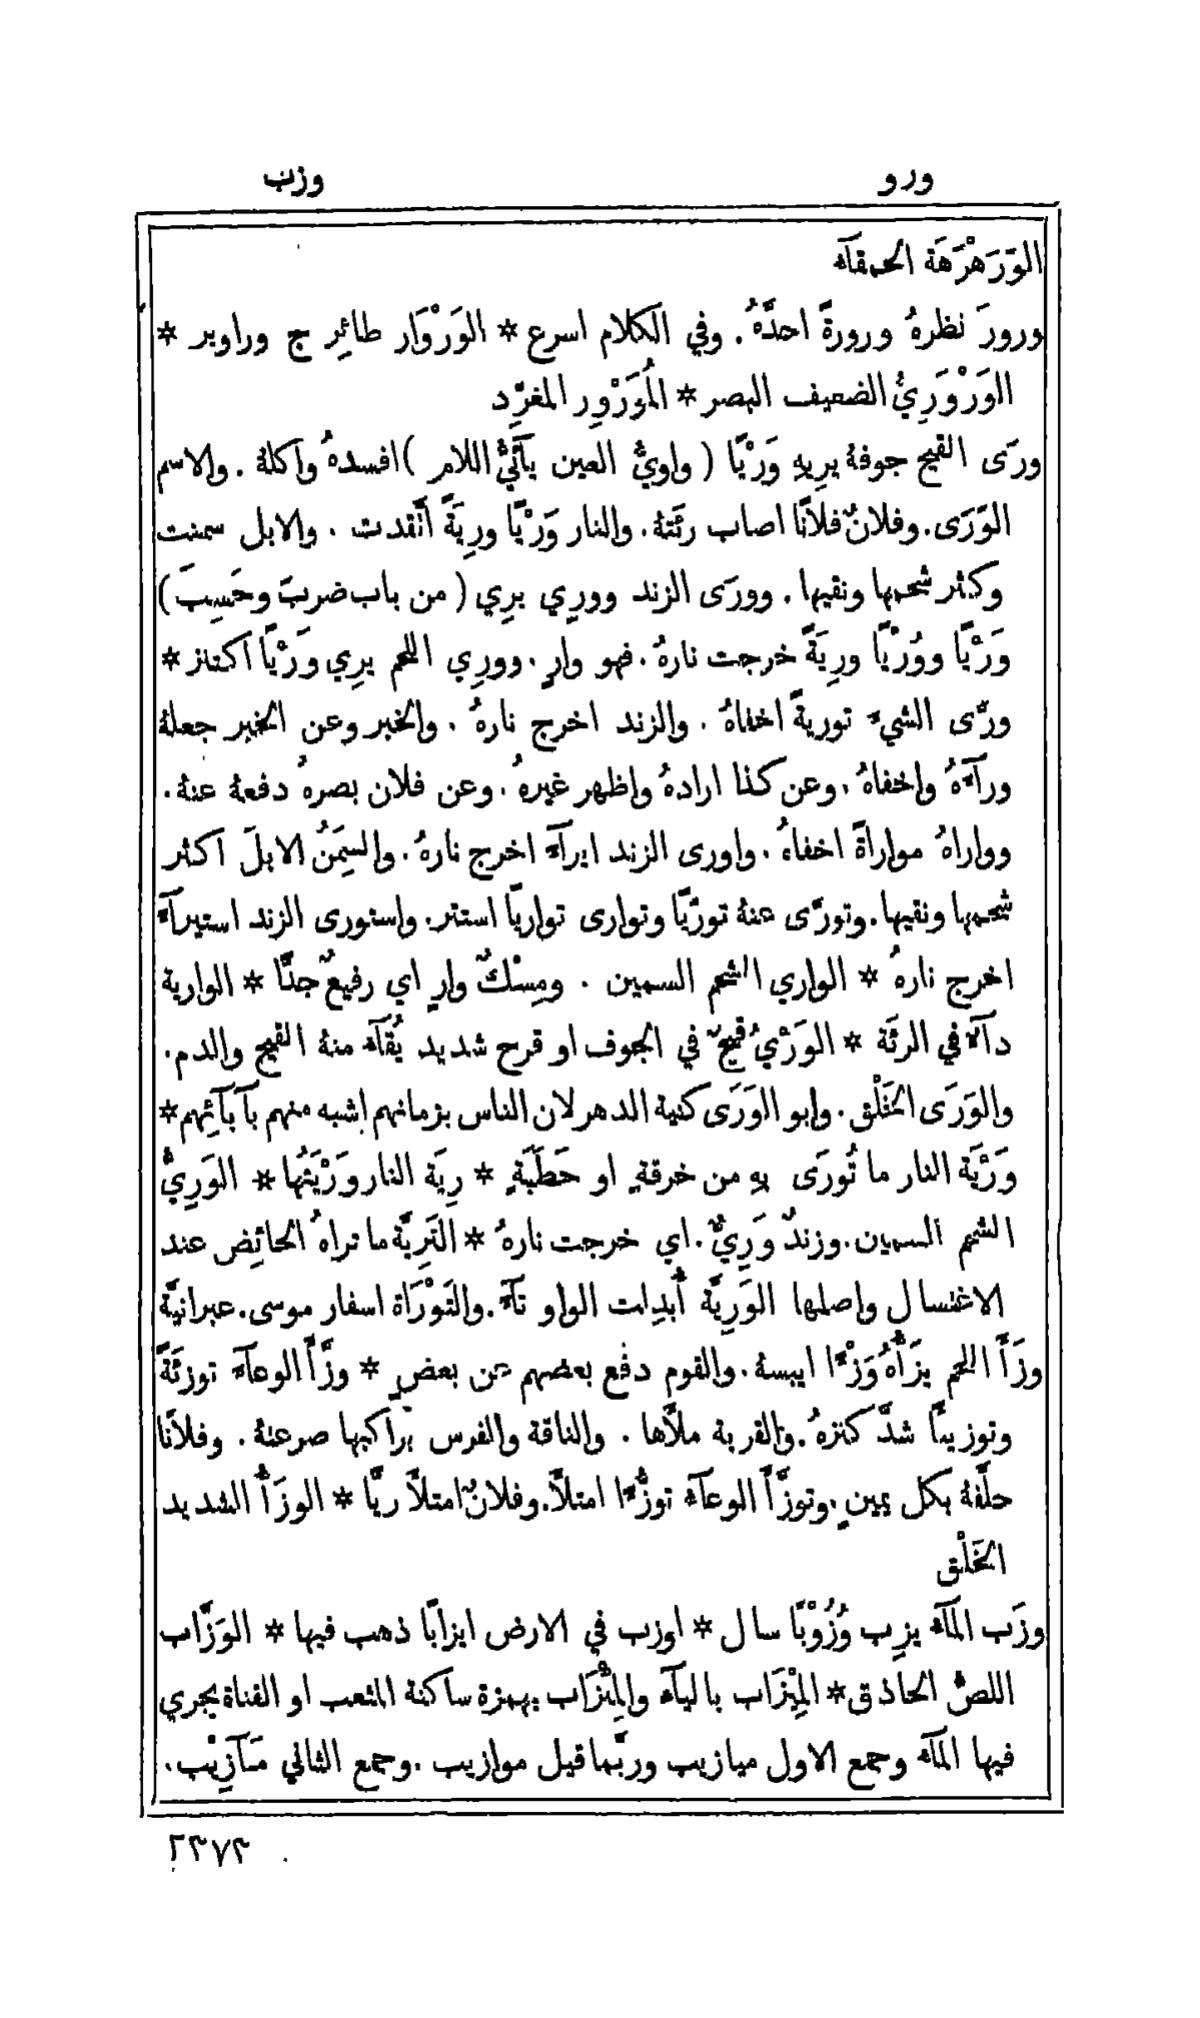 ورو
وزب
الوَرَهْرَهَة الحمقآء
وروَرَ نظرهُ ورورةً احدَّهُ. وفي الكلام اسرع * الوَرْوَار طائِر ج وراوير *
الوَرْوَرِيُّ الضعيف البصر * المُوَرْوِر المغرِّد
ورَى القيح جوفهُ يرِيهِ وَرْيًا ( واويُّ العين يآئيُّ اللام ) افسدهُ واكلهُ . والاسم
الوَرَى. وفلانٌ فلانًا اصاب رئَتهُ. والنار وَرْيًا ورِيَةً اتَّقدت . والابل سمنت
وكثر شحمها ونقيها . وورَى الزند وورِي يرِي ( من باب ضربَ وحَسِبَ )
وَرْيًا ووُرْيًا ورِيَةً خرجت نارهُ . فهو وارٍ . وورِي اللحم يرِي وَرْيًا اكتنز *
ورَّى الشيءَ توريةً اخفاهُ . والزند اخرج نارهُ . والخبر وعن الخبر جعلهُ
ورآءَهُ واخفاهُ . وعن كذا ارادهُ واظهر غيرهُ . وعن فلان بصرهُ دفعهُ عنهُ .
وواراهُ مواراةً اخفاهُ . واورى الزند ايرآءً اخرج نارهُ . والسِمَنُ الابلَ اكثر
شحمها ونقيها . وتورَّى عنهُ تورّيًا وتوارى تواريًا استتر. واستورى الزند استيرآءً
اخرج نارهُ * الواري الشحم السمين . ومِسْكٌ وارٍ اي رفيعٌ جدًّا * الوارية
دآءٌ في الرئَة * الوَرْيُ قيحٌ في الجوف او قرح شديد يُقآء منهُ القيح والدم.
والوَرَى الخَلْق. وابو الوَرَى كنية الدهر لان الناس بزمانهم اشبه منهم بآبآئِهم *
وَرْيَة النار ما تُورَى بهِ من خرقةٍ او حَطَبَةٍ * رِيَة النار وَرْيَتُها * الوَرِيُّ
الشحم السمين. وزندٌ وَرِيٌّ. اي خرجت نارهُ * التَرِيَّة ما تراهُ الحائِض عند
الاغتسال واصلها الوَرِيَّة أُبدِلت الواو تآءً. والتَوْرَاة اسفار موسى. عبرانيَّة
وزَأَ اللحم يزَأُهُ وَزْءًا ايبسهُ. والقوم دفع بعضهم عن بعضٍ * وزَّأَ الوعآءَ توزئَةً
وتوزيئًا شدَّ كنزهُ. والقربة ملأَها . والناقة والفرس براكبها صرعتهُ . وفلانًا
حلَّفهُ بكل يمينٍ. وتوزَّأَ الوعآء توزُّءًا امتلأَ. وفلانٌ امتلأَ ريًّا * الوزَأُ الشديد
الخَلْق
وزَب المآء يزِب وُزُوْبًا سال * اوزب في الارض ايزابًا ذهب فيها * الوَزَّاب
اللصُّ الحاذق * المِيْزَاب باليآء والمِئْزَاب بهمزة ساكنة المثعب او القناة يجري
فيها المآء وجمع الاول ميازيب وربَّما قيل موازيب . وجمع الثاني مَآزِيْب.
٢٣٧٣